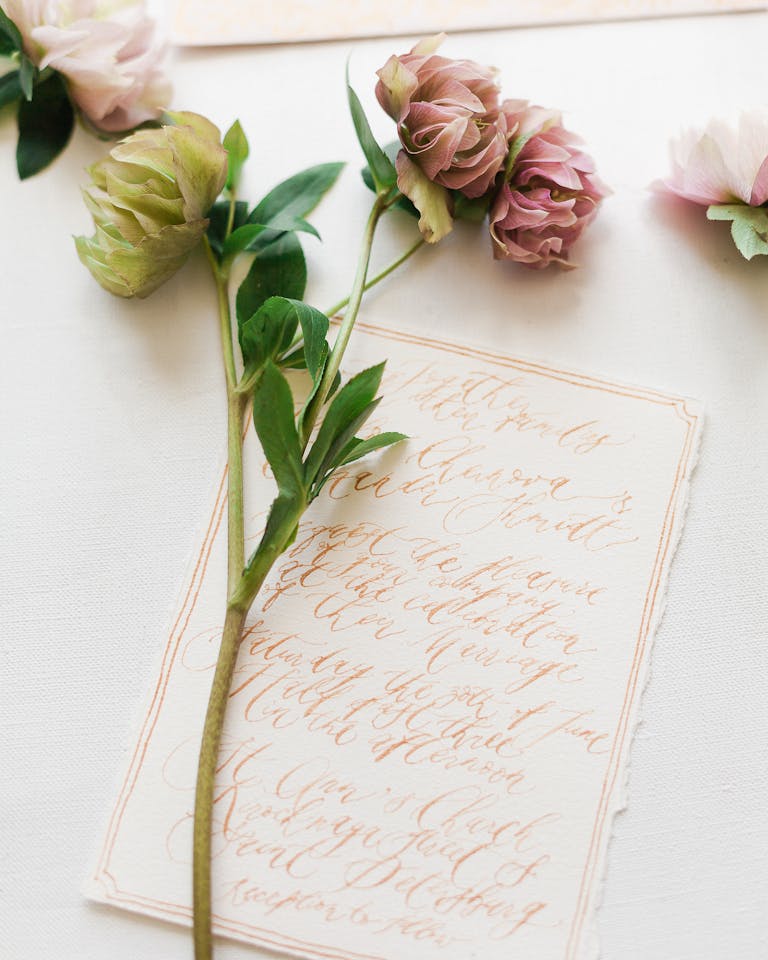 Together
their families
Chernova &
ander Shmidt
request the pleasure
of your company
at the celebration
of their Marriage
Saturday the 30th of June
Half past three
in the afternoon
St. Ann's Church
Street 8
Saint Petersburg
Reception to follow